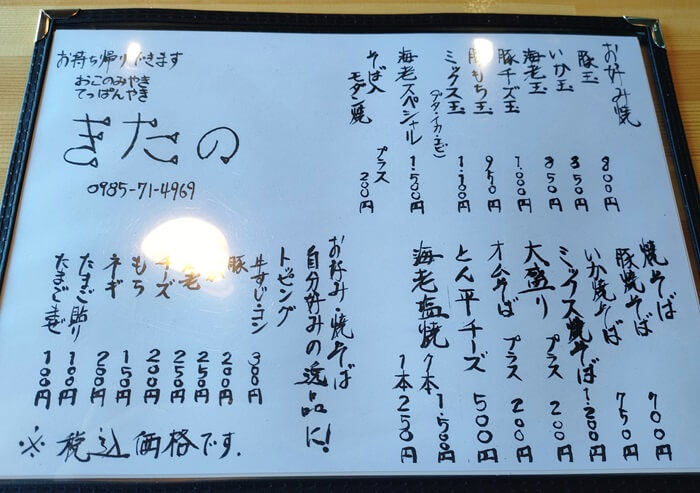 お好み焼
豚玉 800円
いか玉 850円
海老玉 850円
豚チーズ玉 1,000円
豚もち玉 950円
ミックス玉 1,100円
(ブタ・イカ・エビ)
海老スペシャル 1,500円
そば入
モダン焼 プラス 200円
お持ち帰りできます
おこのみやき
てっぱんやき
きたの
0985-71-4969
焼そば 700円
豚焼そば 750円
いか焼そば
ミックス焼そば 1,200円
大盛り プラス 200円
オムそば プラス 200円
とん平チーズ 500円
海老塩焼 7本 1,500円
1本 250円
お好み・焼そば
自分好みの逸品に!
トッピング
牛すじ・コン 300円
豚 200円
250円
老 250円
チーズ 200円
もち 150円
ネギ 200円
たまご貼り 100円
たまご 100円
※税込価格です.